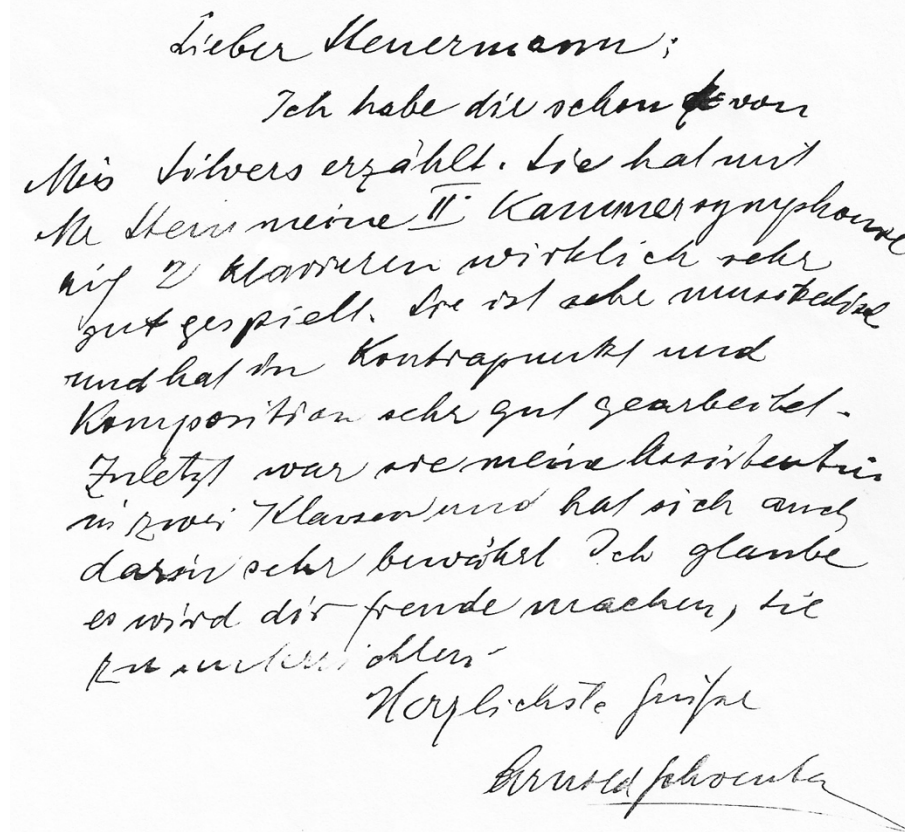 Lieber Steuermann;
Ich habe dir schon von
Miss Silvers erzählt. Sie hat mit
Mr Stein meine II. Kammersymphonie
auf 2 Klavieren wirklich sehr
gut gespielt. Sie ist sehr musikalisch
und hat in Kontrapunkt und
Komposition sehr gut gearbeitet.
Zuletzt war sie meine Assistentin
in zwei Klassen und hat sich auch
darin sehr bewährt Ich glaube
es wird dir freude machen, sie
zu unterrichten.
Herzlichste Grüße
Arnold Schoenberg